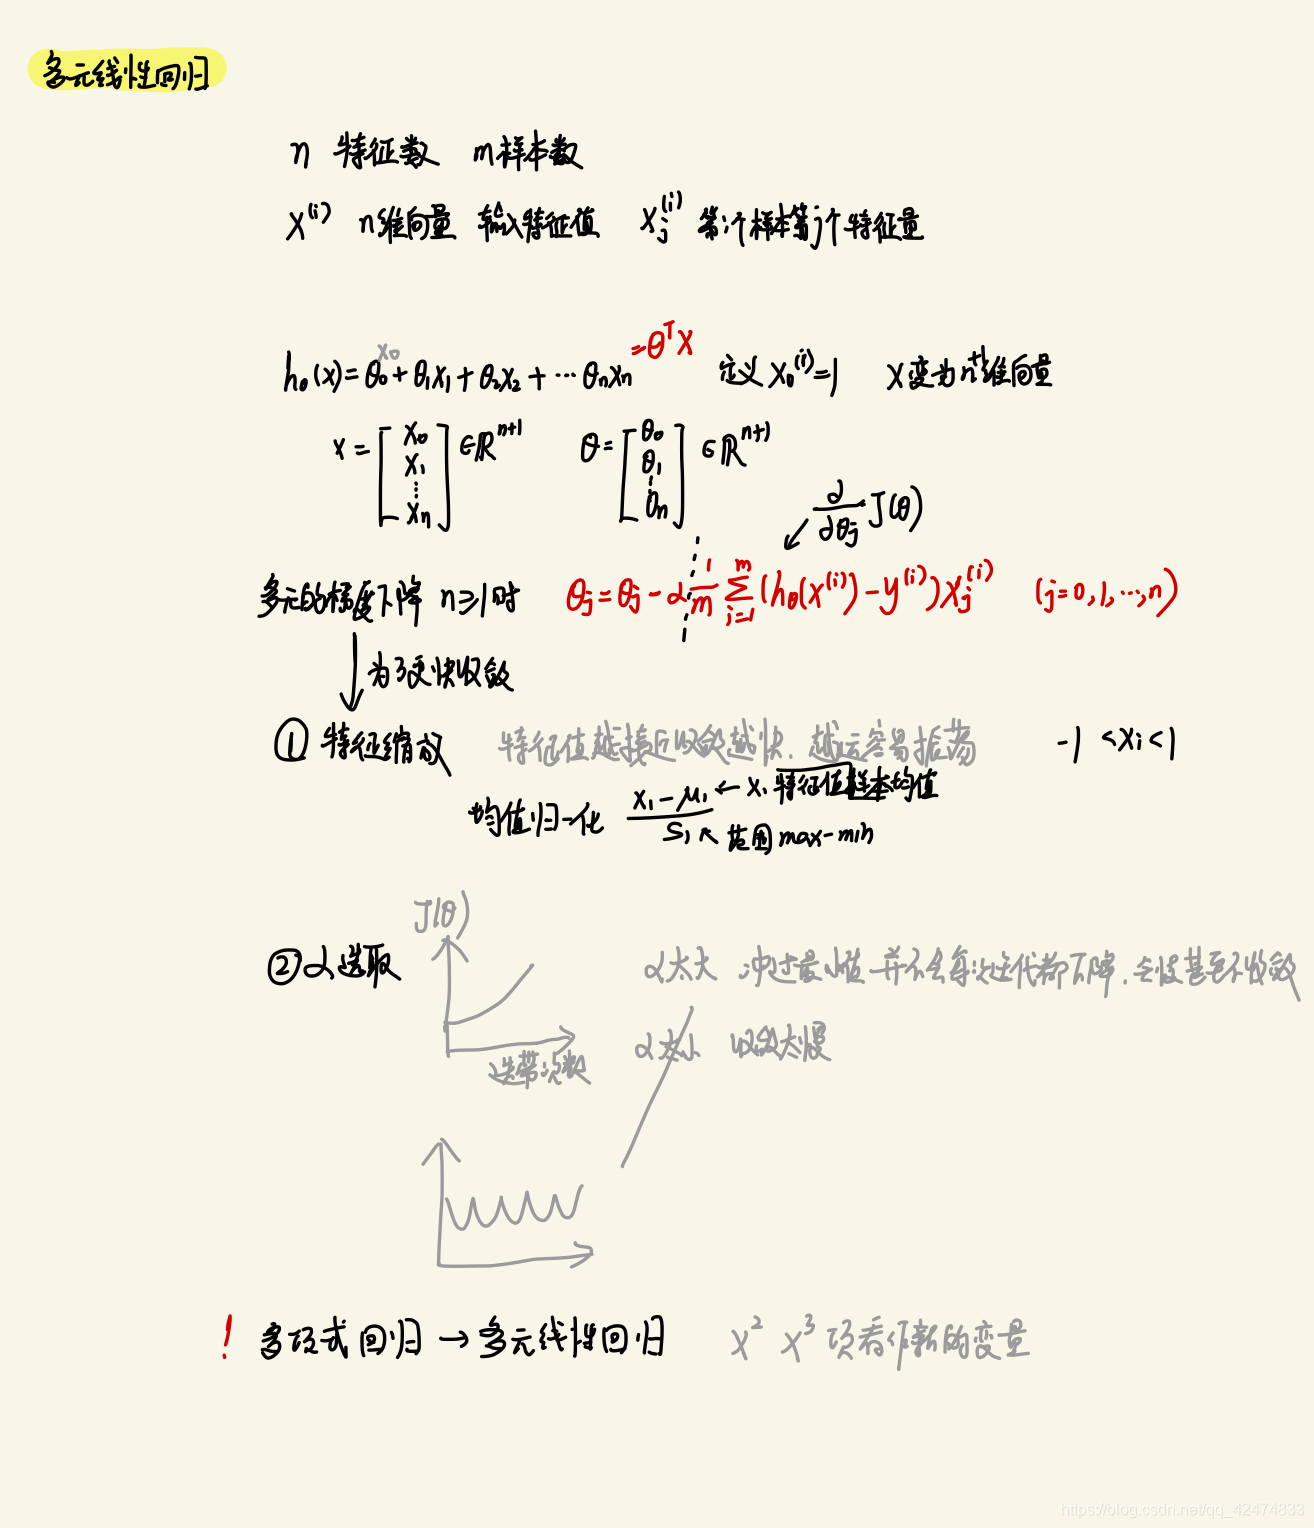 多元线性回归
n 特征数 m 样本数
x^(i) n维向量 输入特征值 x_j^(i) 第i个样本第j个特征量
h_θ(x) = θ_0 x_0 + θ_1x_1 + θ_2x_2 + ··· θ_nx_n = θ^T X 定义 x_0^(i) = 1 X变为n+1维向量
x = [x_0 x_1 ⋮ x_n] ∈ ℝ^(n+1) θ = [θ_0 θ_1 ⋮ θ_n] ∈ ℝ^(n+1)
∂/∂θ_j J(θ)
多元的梯度下降 n ≥ 1时 θ_j = θ_j - α 1/m Σ_(i=1)^m (h_θ(x^(i)) - y^(i)) x_j^(i) (j = 0, 1, ···, n)
↓ 为了更快收敛
① 特征缩放 特征值越接近收敛越快. 越远容易振荡 -1 < x_i < 1
均值归一化 (x_1 - μ_1)/S_1 ← x_1 特征值样本均值
范围 max-min
J(θ)
② α选取 α太大 冲过最小值 并不会每次迭代都下降. 会慢甚至不收敛
α太小 收敛太慢
迭带次数
! 多项式回归 → 多元线性回归 x^2 x^3 项看作新的变量
https://blog.csdn.net/qq_42474833